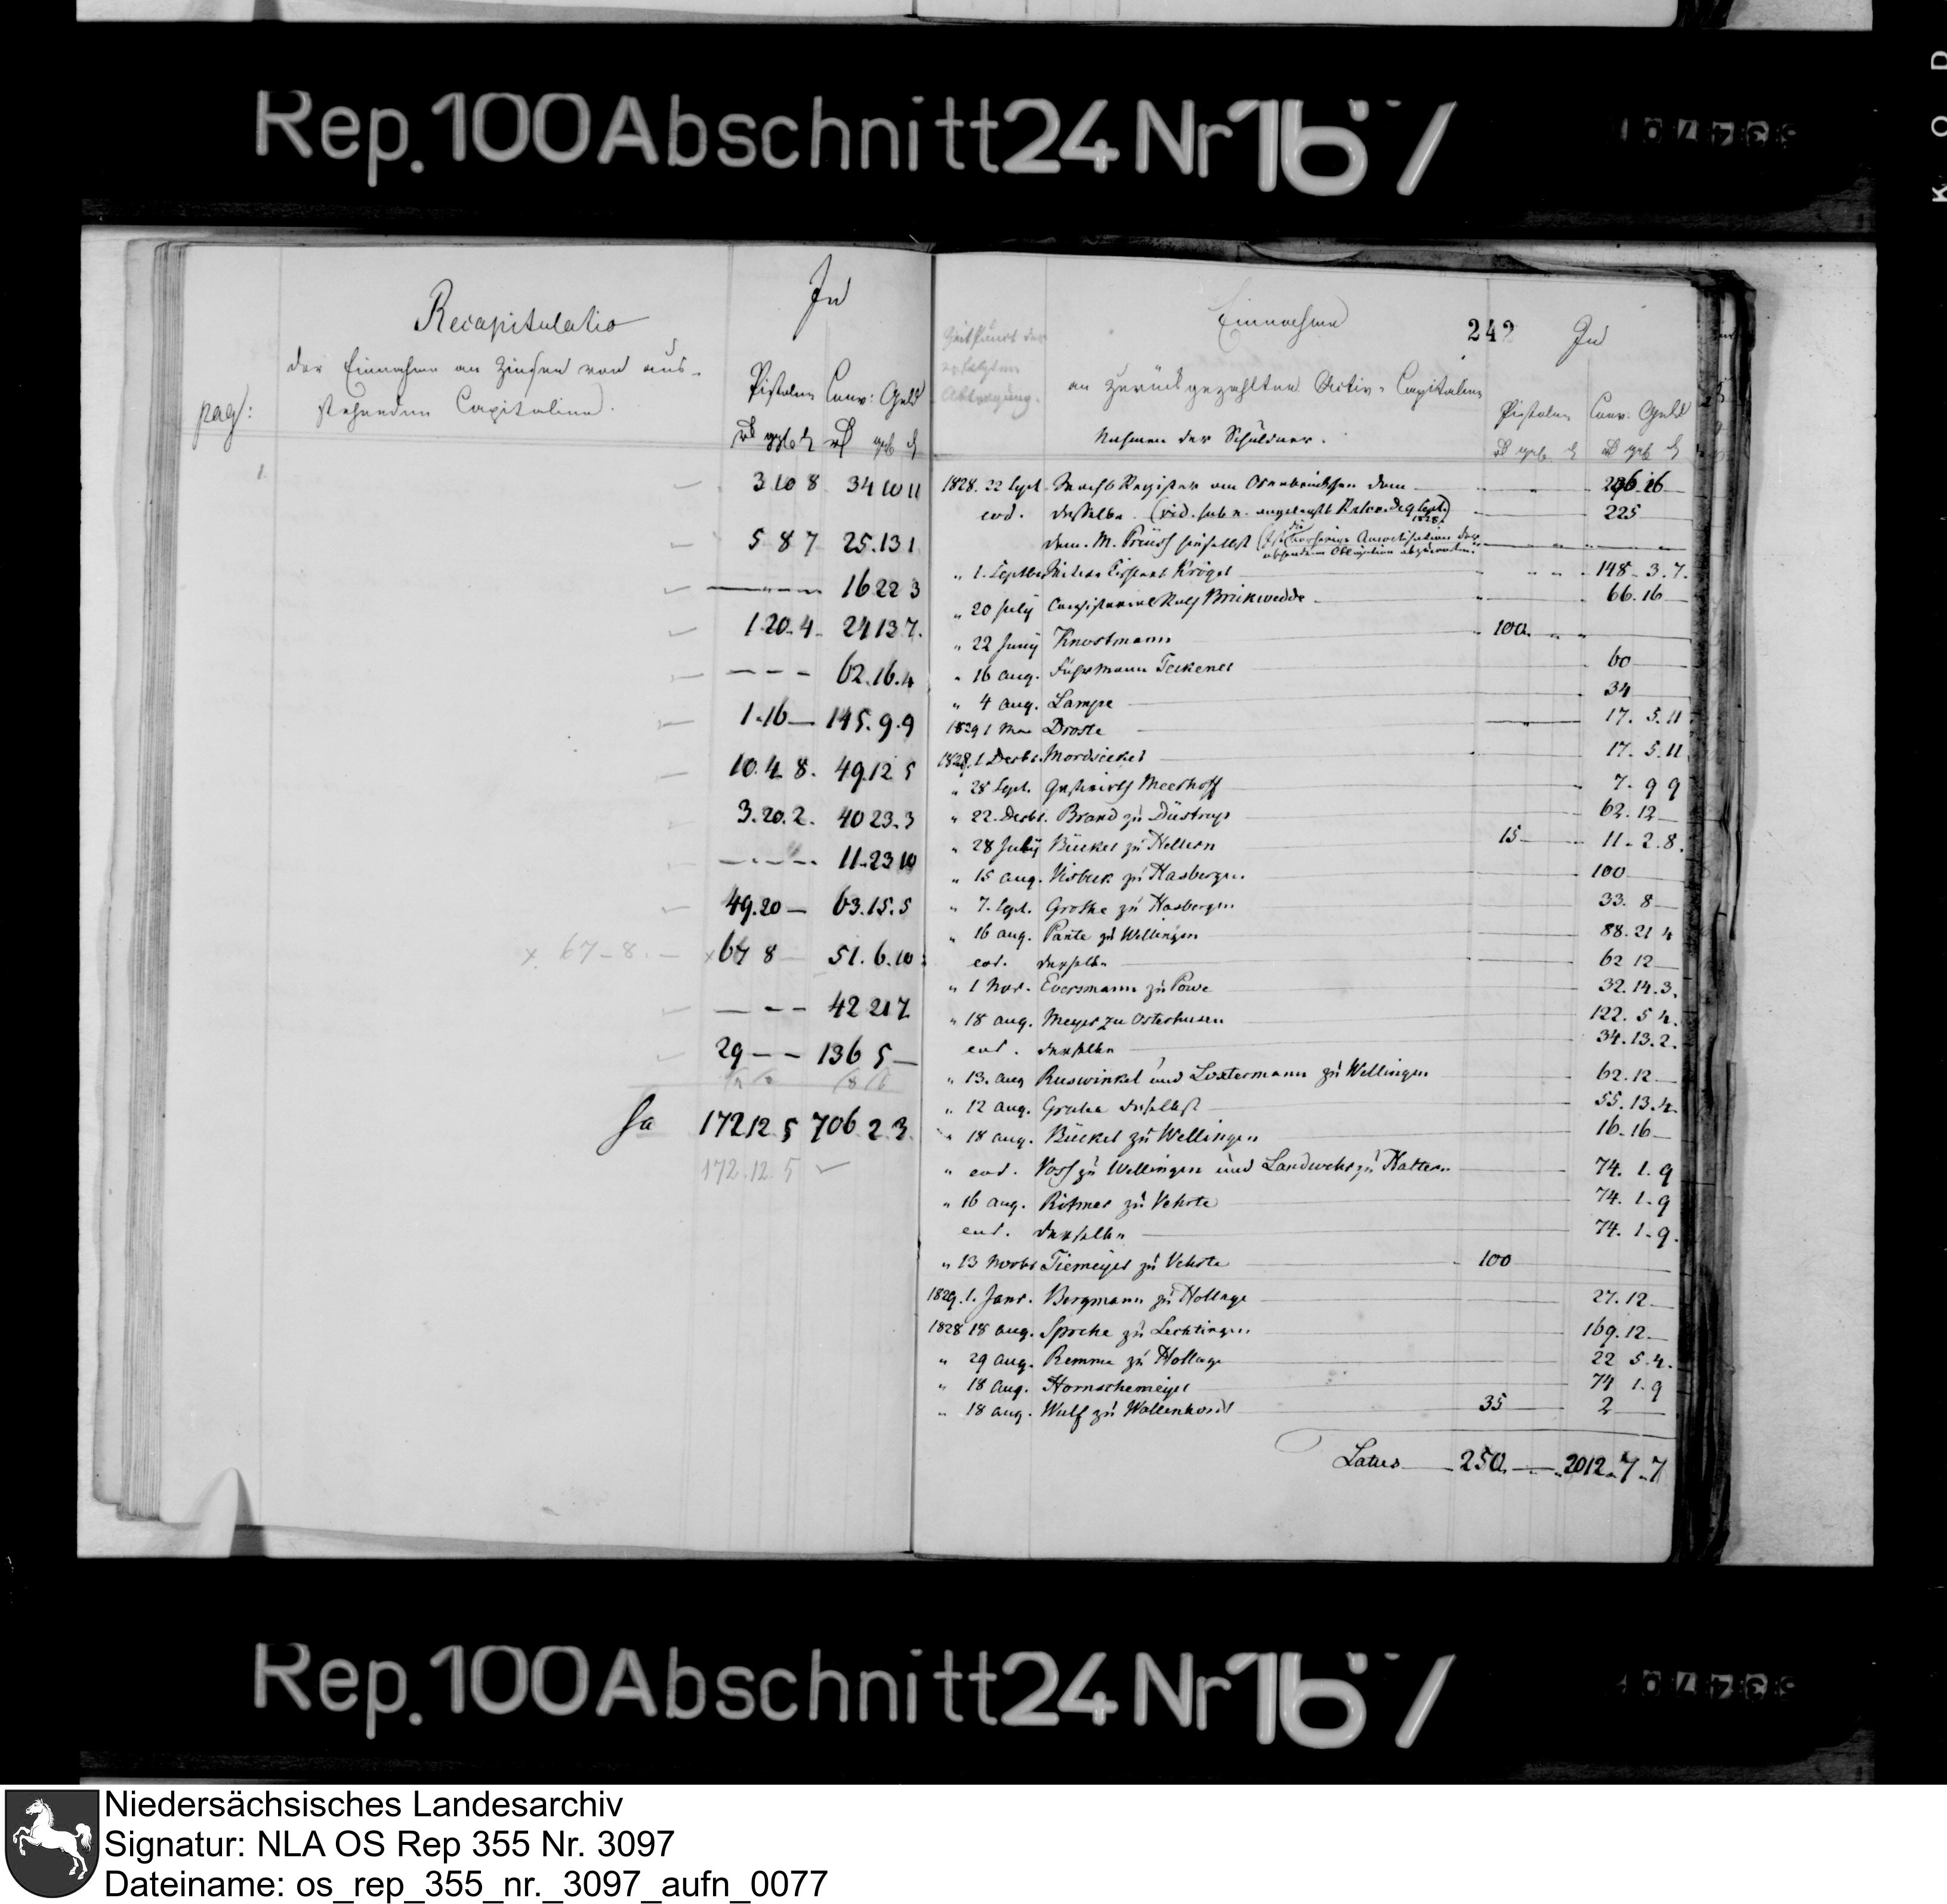 Rep. 100 Abschnitt 24 Nr 167
Recapitulatio
der Einnahme an Zinsen von aus-
stehenden Capitalien.
pag:
In
Pistolen Conv: Geld
3 10 8 34 10 11
5 8 7 25. 13 1
16 22 3
1. 20. 4. 24 13 7.
62. 16. 4
1. 16 — 145. 9. 9
10. 4 8. 49. 12 5
3. 20. 2. 40 23. 3
11. 23 10
49. 20 — 63. 15. 5
x. 67 – 8. — x 67 8 51. 6. 10
42 21 7
29 — — 136 5 —
Sa 172 12 5 706 2 3.
172. 12. 5
242
Einnahme
an zurückgezahlten Activ-Capitalien
Nahmen der Schuldner.
In
Pistolen Conv: Geld
1828. 22 Sept.
eod. derselbe 225
" 1. Septbr. Krögel 148 – 3. 7.
" 20 July Brickwedde 66. 16 —
" 22 Juny Knostmann 100.
" 16 Aug. Fuhrmann Teckener 60
" 4 Aug. Lampe 34
1829 1 Droste 17. 5. 11
1828. 1 Decbr. Mordsiekel 17. 5. 11
" 28 Sept. Meerhoff 7. 9 9
" 22. Decbr. Brand zu Düstrup 62. 12 —
" 28 July Bücker zu Hellern 15 — 11. 2. 8.
" 15 Aug. Visbeck zu Hasbergen 100
" 7. Sept. Grothe zu Hasbergen 33. 8 —
" 16 Aug. Pante zu Wellingen 88. 21 4
eod. derselbe 62 12 —
" 1 Nov. Eversmann zu Powe 32. 14. 3.
" 18 Aug. Meyer zu Osterhusen 122. 5 4.
eod. derselbe 34. 13. 2.
" 13. Aug Ruswinkel und Loxtermann zu Wellingen 62. 12 —
" 12 Aug. daselbst 55. 13. 4.
" 18 Aug. Bücker zu Wellingen 16. 16 —
" eod. Voss zu Wellingen und Landwehr zu Haltern 74. 1. 9
" 16 Aug. Rittmer zu Vehrte 74. 1. 9
eod. derselbe 74. 1. 9.
" 13 Novbr Tiemeyer zu Vehrte 100
1829. 1. Janr. Bergmann zu Hollage 27. 12 —
1828 18 Aug. Sprehe zu Lechtingen 169. 12 —
" 29 Aug. Remme zu Hollage 22 5. 4.
" 18 Aug. Hornschemeyer 74 1. 9
" 18 Aug. Wulf zu Wallenhorst 35 — 2
Latus — 250. — 2012. 7. 7
Rep. 100 Abschnitt 24 Nr 167
Niedersächsisches Landesarchiv
Signatur: NLA OS Rep 355 Nr. 3097
Dateiname: os_rep_355_nr._3097_aufn_0077